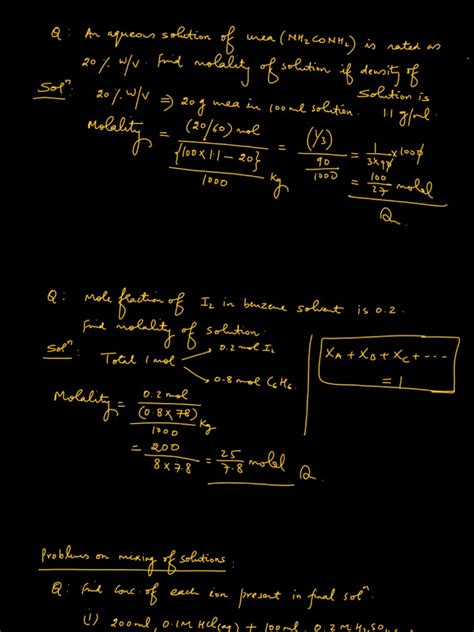 Q: An aqueous solution of urea (NH2CONH2) is rated as
20% W/V. Find molality of solution if density of
solution is 1.1 g/ml.
Solⁿ: 20% W/V ⇒ 20g urea in 100ml solution.
Molality = (20/60) mol / ({100×1.1 − 20}/1000) Kg = (1/3) / (90/1000) = 1/(3×90) × 1000
= 100/27 molal
Q: Mole fraction of I2 in benzene solvent is 0.2.
Find molality of solution.
Solⁿ: Total 1 mol → 0.2 mol I2
→ 0.8 mol C6H6.
XA + XB + XC + ----
= 1
Molality = 0.2 mol / ((0.8×78)/1000) Kg
= 200/(8×7.8) = 25/7.8 molal
Problems on mixing of solutions:
Q: Find conc. of each ion present in final solⁿ.
(i) 200ml, 0.1M HCl(aq) + 100ml, 0.2M H2SO4